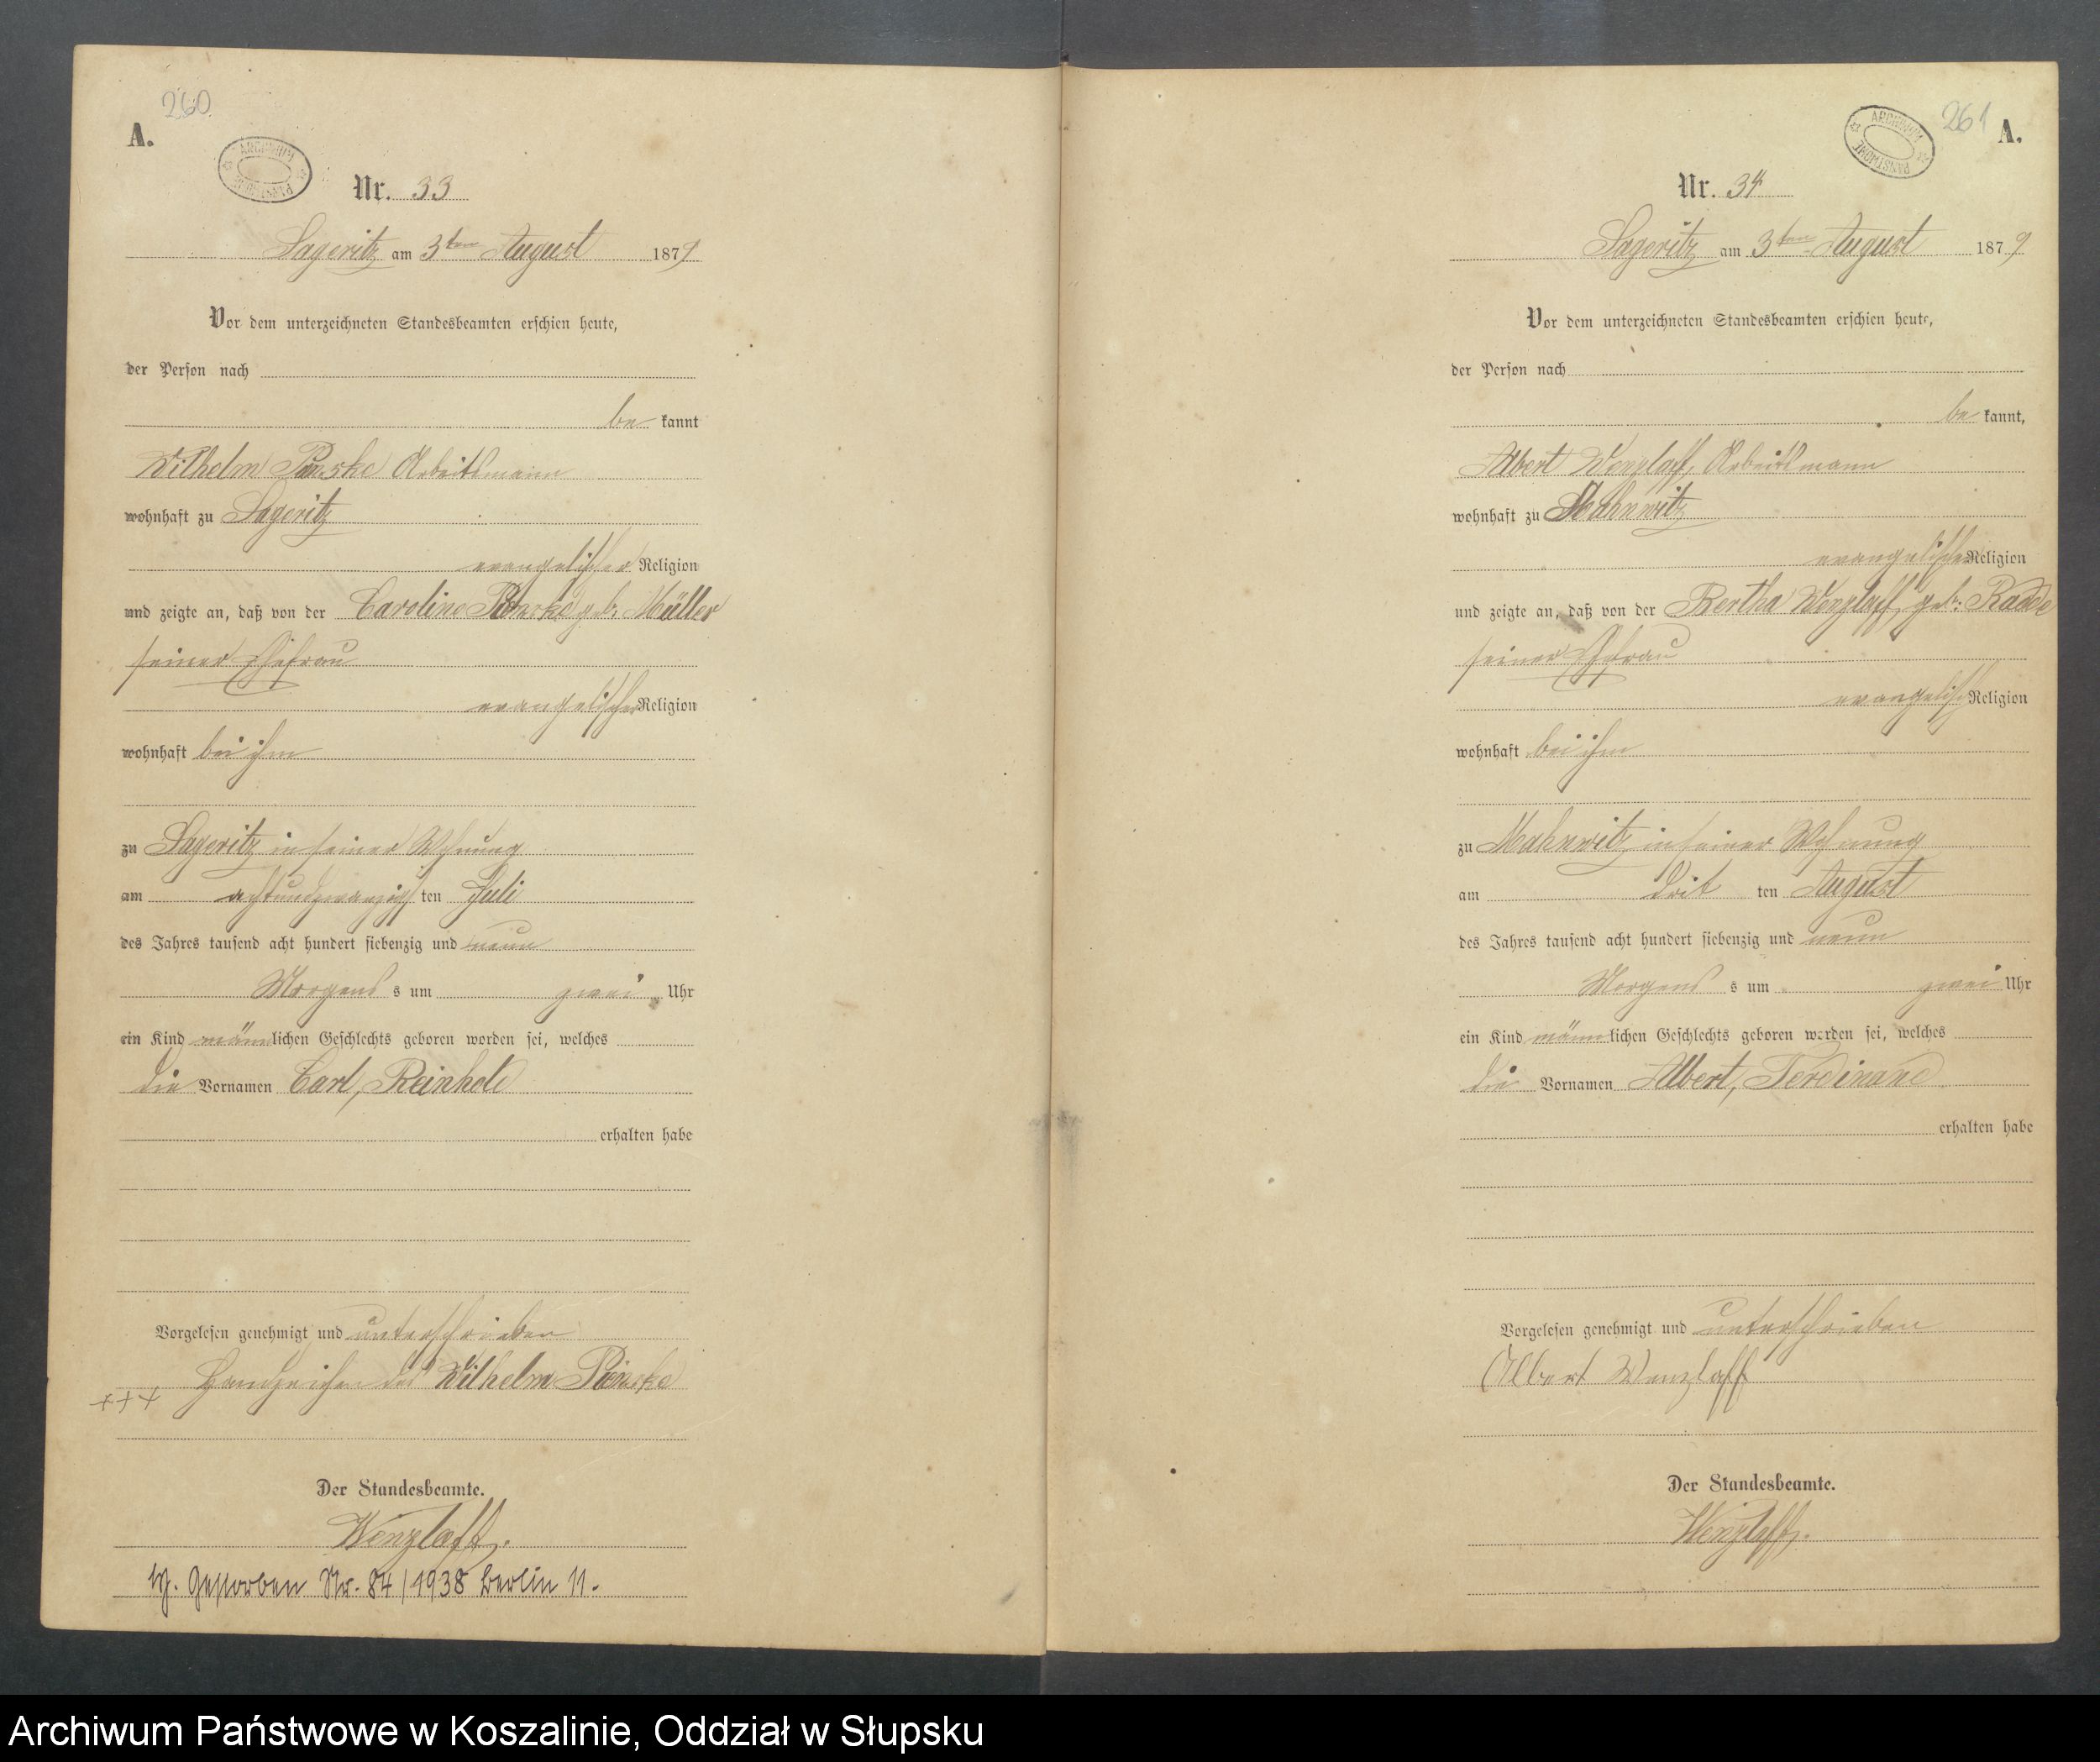 260
A.
ARCHIWUM PAŃSTWOWE
Nr. 33
Sageritz am 3ten August 1879
Vor dem unterzeichneten Standesbeamten erschien heute,
der Person nach
be kannt
Wilhelm Arbeitsmann
wohnhaft zu Sageritz
evangelischer Religion
und zeigte an, daß von der Caroline geb. Müller
seiner Ehefrau
evangelischer Religion
wohnhaft bei ihm
zu Sageritz in seiner Wohnung
am achtundzwanzigs ten Juli
des Jahres tausend acht hundert siebenzig und neun
Morgens s um zwei Uhr
ein Kind männlichen Geschlechts geboren worden sei, welches
die Vornamen Carl, Reinhold
erhalten habe
Vorgelesen genehmigt und unterschrieben
+++ Handzeichen des Wilhelm
Der Standesbeamte.
Wenzlaff.
Gestorben Nr. 84/1938 Berlin 11.
261
A.
ARCHIWUM PAŃSTWOWE
Nr. 34
Sageritz am 3ten August 1879
Vor dem unterzeichneten Standesbeamten erschien heute,
der Person nach
be kannt,
Albert Wenzlaff, Arbeitsmann
wohnhaft zu Mahnwitz
evangelischer Religion
und zeigte an, daß von der Bertha Wenzlaff, geb: Radde
seiner Ehefrau
evangelisch Religion
wohnhaft bei ihm
zu Mahnwitz in seiner Wohnung
am drit ten August
des Jahres tausend acht hundert siebenzig und neun
Morgens s um zwei Uhr
ein Kind männlichen Geschlechts geboren worden sei, welches
die Vornamen Albert, Ferdinand
erhalten habe
Vorgelesen genehmigt und unterschrieben
Albert Wenzlaff
Der Standesbeamte.
Wenzlaff.
Archiwum Państwowe w Koszalinie, Oddział w Słupsku